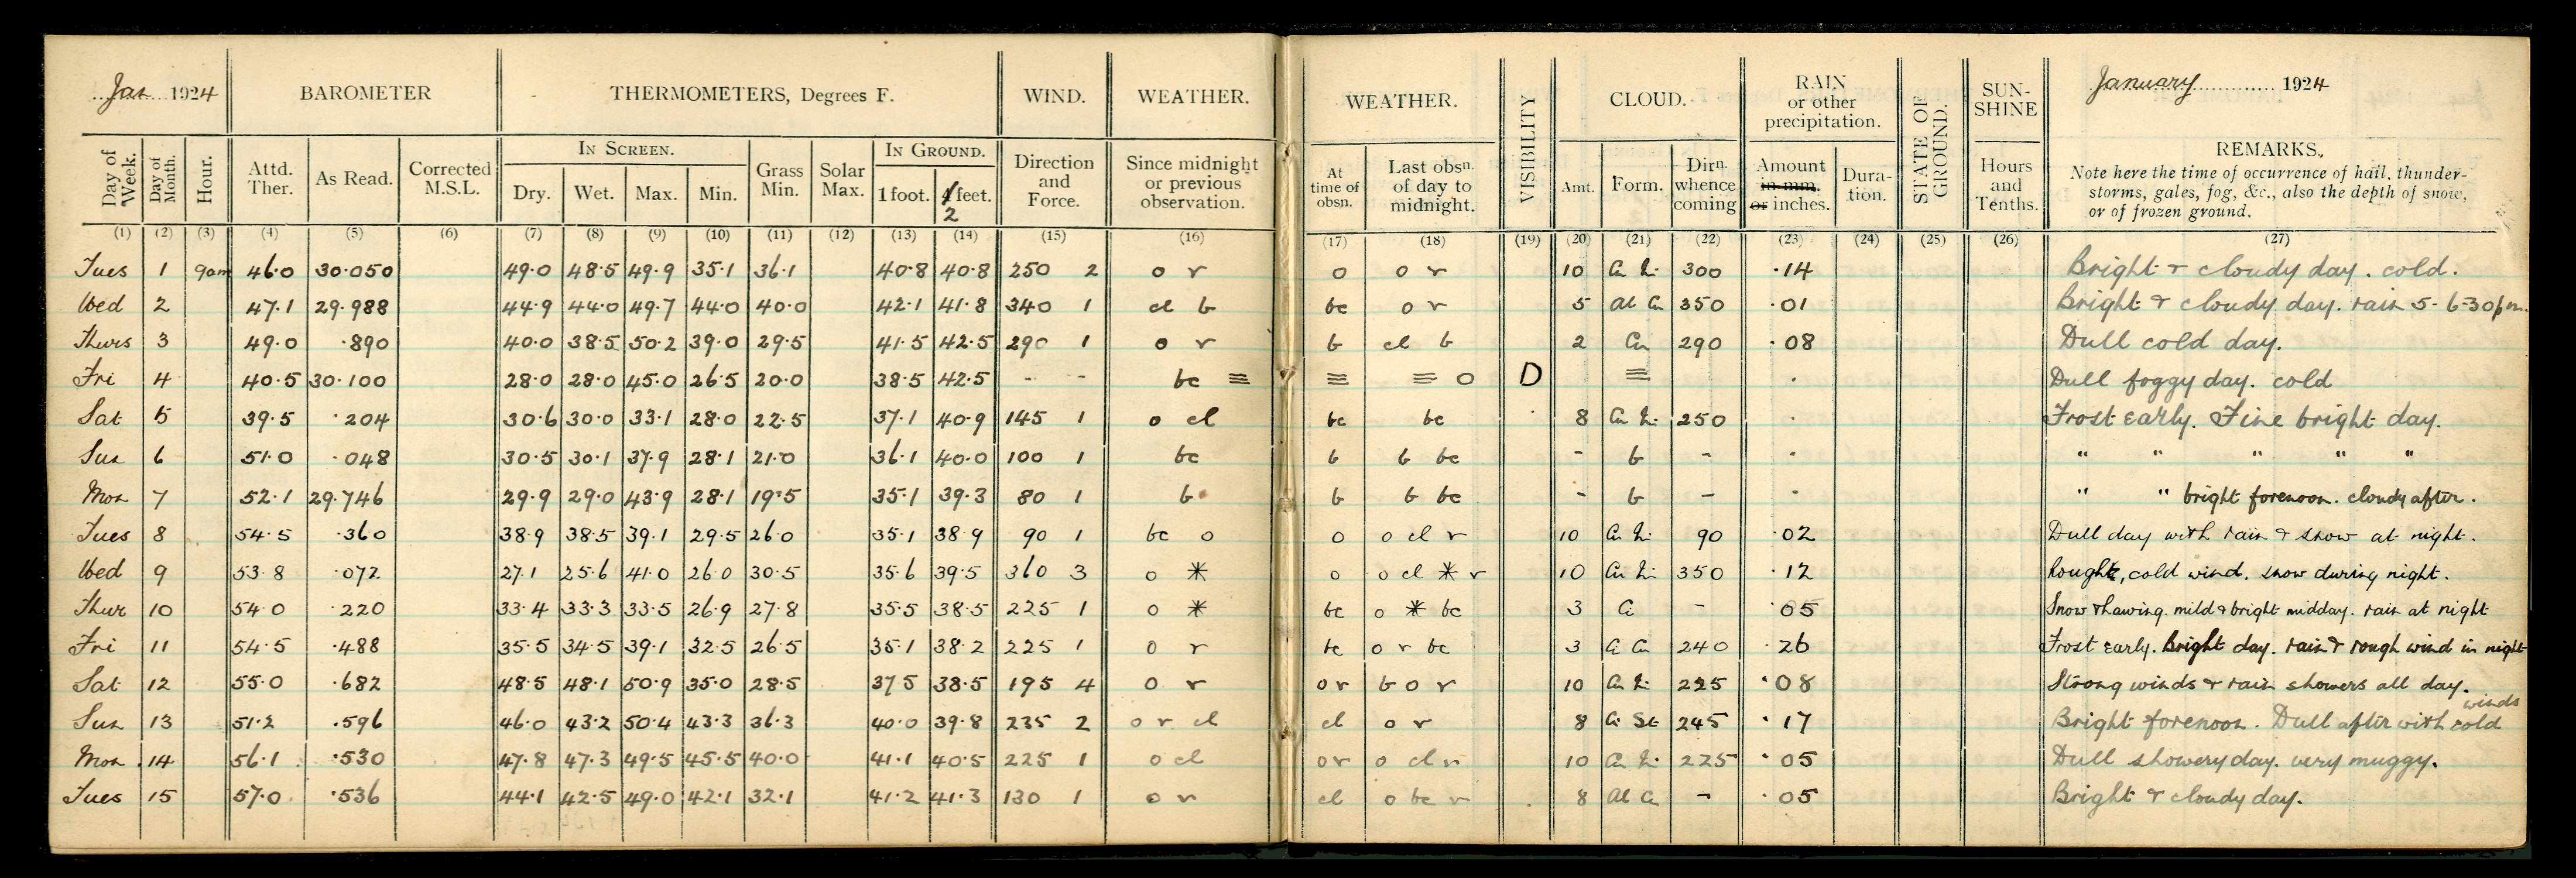 Jan 1924 BAROMETER THERMOMETERS, Degrees F. WIND. WEATHER. WEATHER. VISIBILITY CLOUD. RAIN or other precipitation. STATE OF GROUND. SUN-SHINE January 1924
IN SCREEN. IN GROUND. REMARKS.
Day of Week. Day of Month. Hour. Attd. Ther. As Read. Corrected M.S.L. Dry. Wet. Max. Min. Grass Min. Solar Max. 1 foot. 4 2 feet. Direction and Force. Since midnight or previous observation. At time of obsn. Last obsn. of day to midnight. Amt. Form. Dirn. whence coming Amount in mm. or inches. Dura-tion. Hours and Tenths.
Note here the time of occurrence of hail, thunder-
storms, gales, fog, &c., also the depth of snow,
or of frozen ground.
(1) (2) (3) (4) (5) (6) (7) (8) (9) (10) (11) (12) (13) (14) (15) (16) (17) (18) (19) (20) (21) (22) (23) (24) (25) (26) (27)
Tues 1 9am 46.0 30.050 49.0 48.5 49.9 35.1 36.1 40.8 40.8 250 2 o r o o r 10 300 .14 Bright & cloudy day. cold.
Wed 2 47.1 29.988 44.9 44.0 49.7 44.0 40.0 42.1 41.8 340 1 cl b bc o r 5 Al Cu 350 .01 Bright & cloudy day. rain 5-6-30pm.
Thurs 3 49.0 .890 40.0 38.5 50.2 39.0 29.5 41.5 42.5 290 1 o r b cl b 2 Cu 290 .08 Dull cold day.
Fri 4 40.5 30.100 28.0 28.0 45.0 26.5 20.0 38.5 42.5 - - bc ≡ ≡ ≡ o D ≡ . Dull foggy day. cold
Sat 5 39.5 .204 30.6 30.0 33.1 28.0 22.5 37.1 40.9 145 1 o cl bc bc 8 250 . Frost early. Fine bright day.
Sun 6 51.0 .048 30.5 30.1 37.9 28.1 21.0 36.1 40.0 100 1 bc b b bc - b - . " " " " "
Mon 7 52.1 29.746 29.9 29.0 43.9 28.1 19.5 35.1 39.3 80 1 b b b bc - b - . " " bright forenoon. cloudy after.
Tues 8 54.5 .360 38.9 38.5 39.1 29.5 26.0 35.1 38.9 90 1 bc o o o cl r 10 90 .02 Dull day with rain & snow at night.
Wed 9 53.8 .072 27.1 25.6 41.0 26.0 30.5 35.6 39.5 360 3 o * o o cl * r 10 350 .12 Rough, cold wind. snow during night.
Thur 10 54.0 .220 33.4 33.3 33.5 26.9 27.8 35.5 38.5 225 1 o * bc o * bc 3 Ci - .05 Snow thawing. mild & bright midday. rain at night
Fri 11 54.5 .488 35.5 34.5 39.1 32.5 26.5 35.1 38.2 225 1 o r bc o r bc 3 Ci Cu 240 .26 Frost early. Bright day. rain & rough wind in night
Sat 12 55.0 .682 48.5 48.1 50.9 35.0 28.5 37.5 38.5 195 4 o r o r b o r 10 225 .08 Strong winds & rain showers all day.
Sun 13 51.2 .596 46.0 43.2 50.4 43.3 36.3 40.0 39.8 235 2 o r cl cl o r 8 Ci St 245 .17 Bright forenoon. Dull after with cold winds
Mon 14 56.1 .530 47.8 47.3 49.5 45.5 40.0 41.1 40.5 225 1 o cl o r o cl r 10 225 .05 Dull showery day. very muggy.
Tues 15 57.0 .536 44.1 42.5 49.0 42.1 32.1 41.2 41.3 130 1 o r cl o bc r 8 Al Cu - .05 Bright & cloudy day.